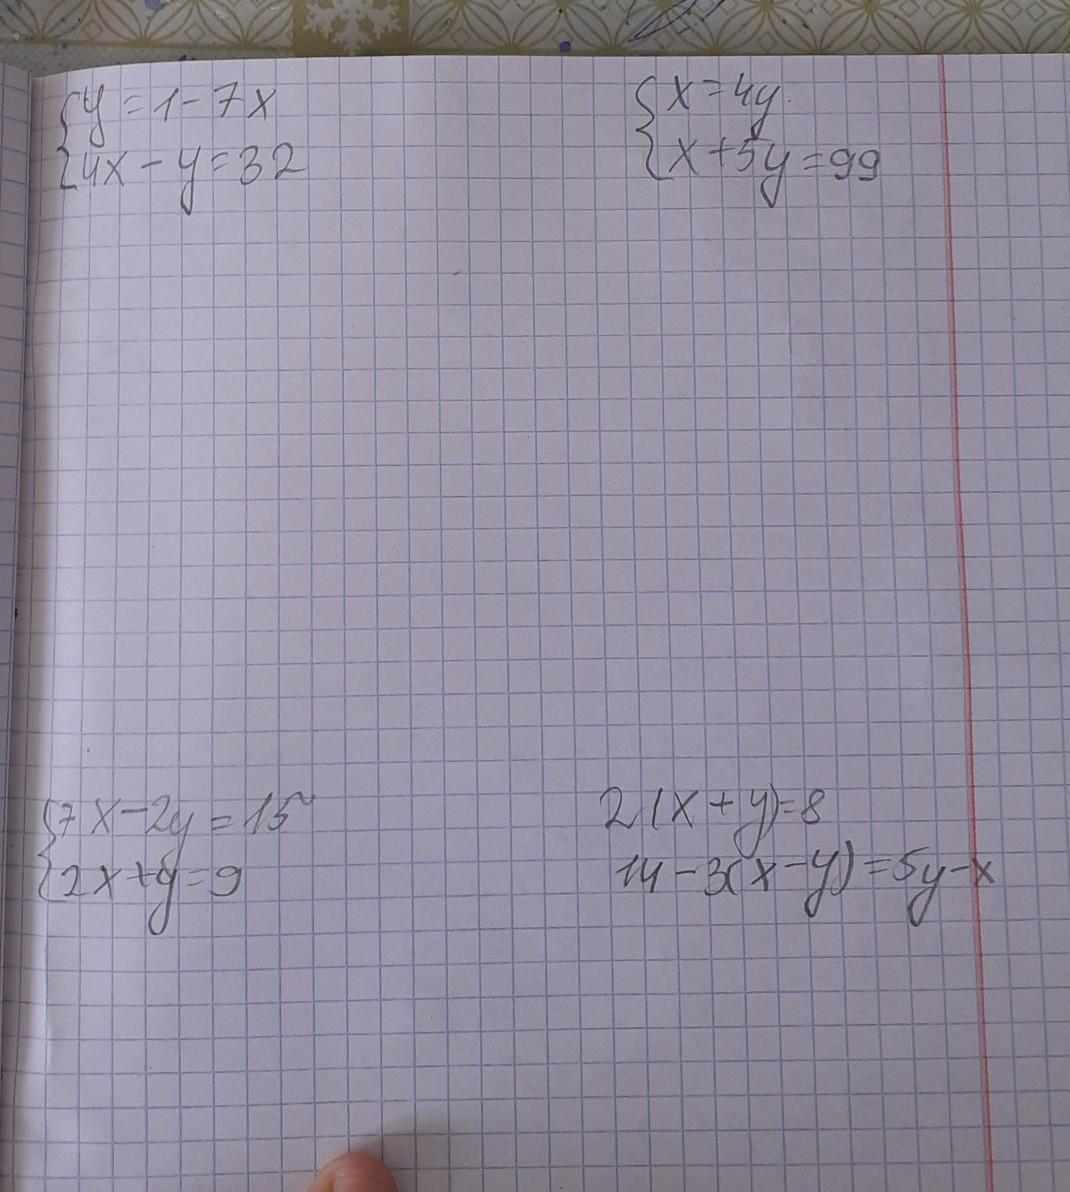 y = 1 - 7x
4x - y = 32
x = 4y
x + 5y = 99
7x - 2y = 15
2x + y = 9
2(x + y) = 8
14 - 3(x - y) = 5y - x